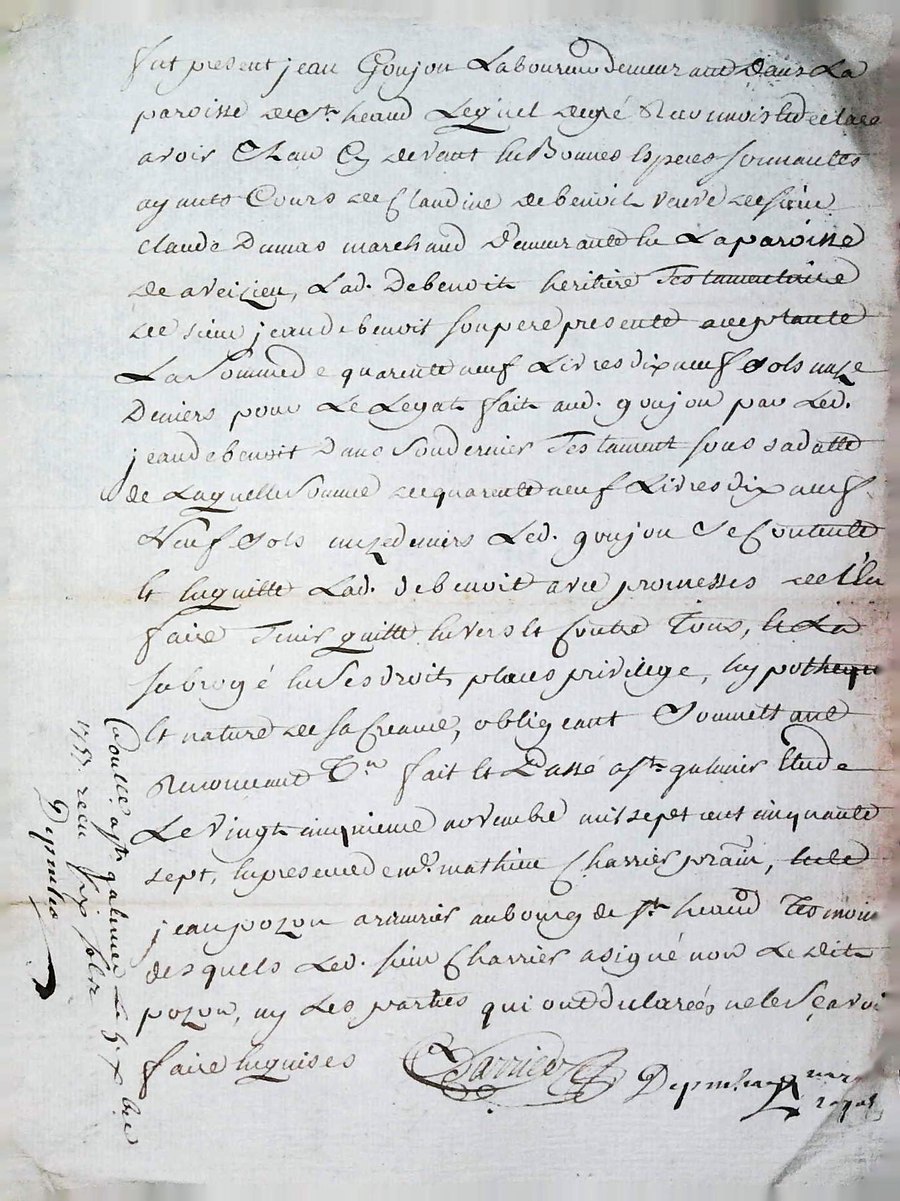 fut present jean Goujon Laboureur demeurant dans La
paroisse de St heand Lequel de gré Reconnoist et declare
avoir Eu en devant en Bonnes Especes sonnantes
ayants Cours de Claudine debenoit veuve de sieur
Claude Dumas marchand demeurante en La paroisse
de aveizieu, Lad. Debenoit heritière Testamentaire
de sieur jean debenoit son pere presente acceptante
La Somme de quarente neuf Livres dix neuf sols onze
Deniers pour Le Legat fait aud. goujon par Led.
jean debenoit Dans son dernier Testament sous sa datte
de Laquelle somme de quarente neuf Livres dix neuf
Neuf sols onze deniers Led. goujon Se Contente
Et en quitte Lad. debenoit avec promesses de L'en
faire Tenir quitte envers Et Contre Tous, Et La
subrogé en Ses droits places privilege, hypotheque
Et nature de sa Creance, obligeant Soumettant
Renonceant &c fait Et Passé a St galmier Etude
Le vingt cinquieme novembre mil sept cent cinquante
sept, en presence de mr. mathieu Charrier pratn, et de
jean pozon armurier au bourg de St heand Tesmoin
desquels Led. sieur Charrier a signé non Le dit
pozon, ny Les parties qui ont declarées ne le Sçavoi
faire enquises
Charrier
Depinhac nore
royal
Controllé a St galmier Le 5e xbre
1757 recu six sols
Depinhac